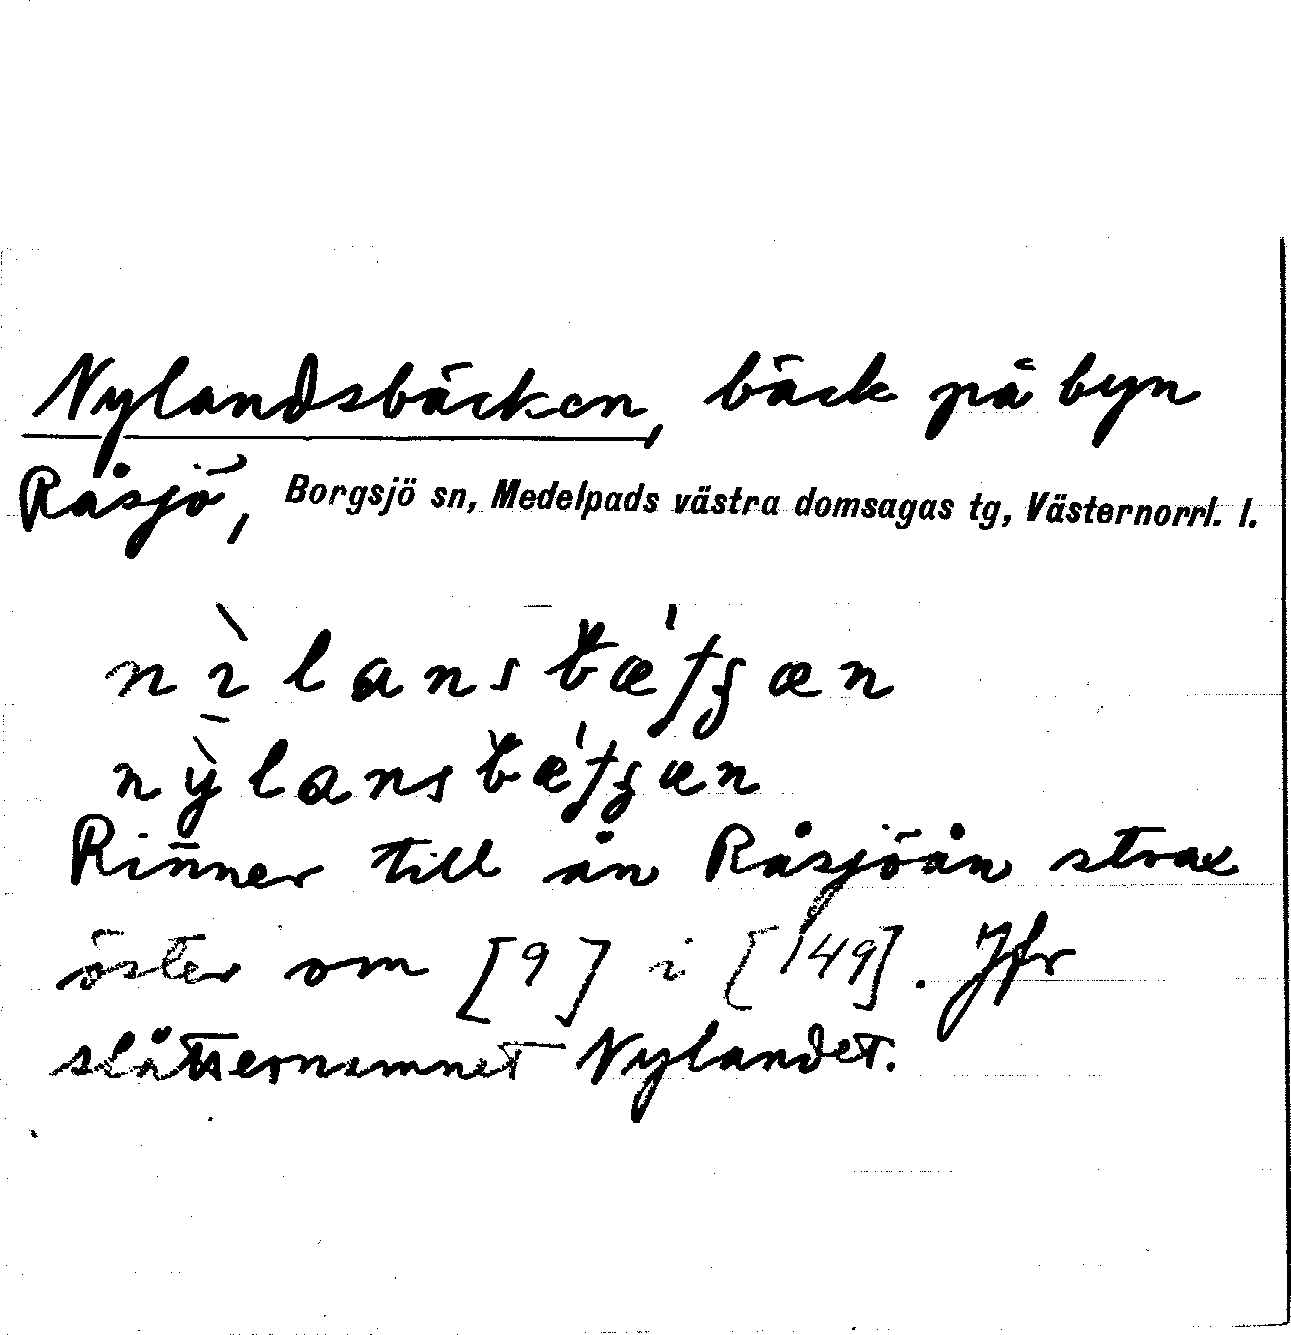 Nylandsbäcken, bäck på byn
Råsjö, Borgsjö sn, Medelpads västra domsagas tg, Västernorrl. l.
Rinner till ån Råsjöån strax
öster om [9] i [149]. Jfr
slåtternamnet Nylandet.